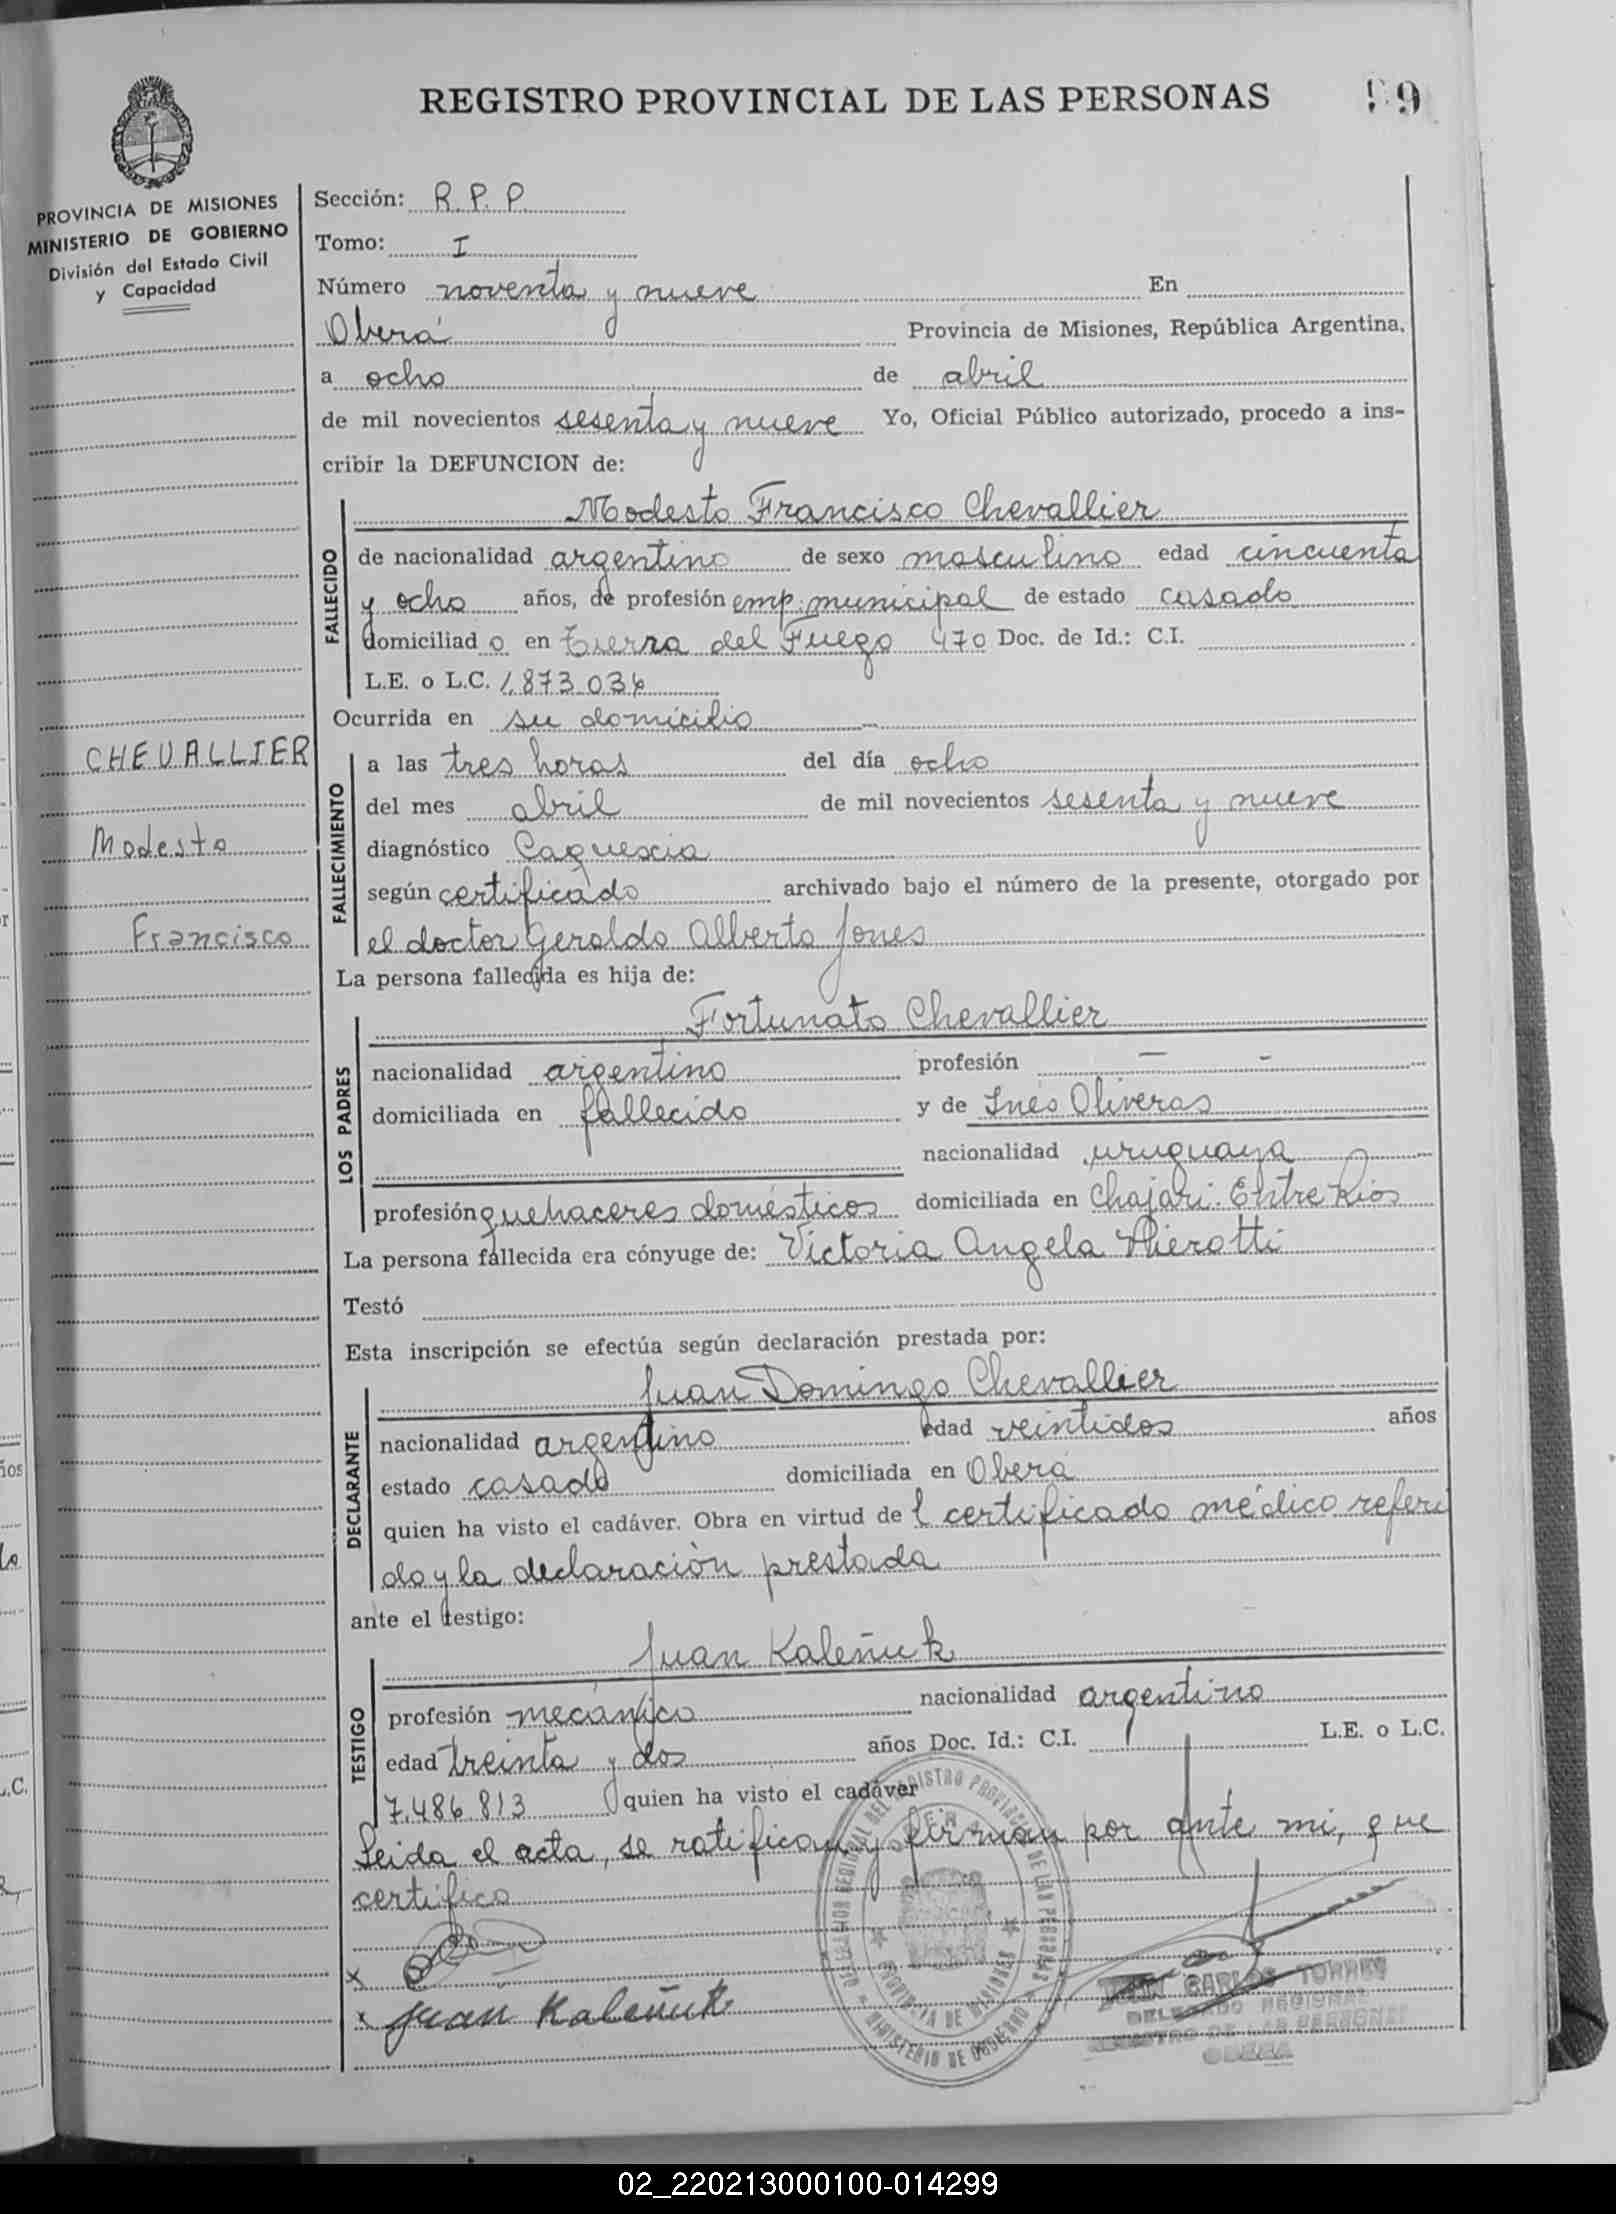 REGISTRO PROVINCIAL DE LAS PERSONAS 99
PROVINCIA DE MISIONES
MINISTERIO DE GOBIERNO
División del Estado Civil
y Capacidad
CHEVALLIER
Modesto
Francisco
Sección: R. P. P.
Tomo: I
Número noventa y nueve En
Oberá Provincia de Misiones, República Argentina,
a ocho de abril
de mil novecientos sesenta y nueve Yo, Oficial Público autorizado, procedo a ins-
cribir la DEFUNCION de:
FALLECIDO
Modesto Francisco Chevallier
de nacionalidad argentino de sexo masculino edad cincuenta
y ocho años, de profesión emp. municipal de estado casado
domiciliad o en Tierra del Fuego 470 Doc. de Id.: C.I.
L.E. o L.C. 1.873.034
Ocurrida en su domicilio
FALLECIMIENTO
a las tres horas del día ocho
del mes abril de mil novecientos sesenta y nueve
diagnóstico Caquexia
según certificado archivado bajo el número de la presente, otorgado por
el doctor Geraldo Alberto Jones
La persona fallecida es hija de:
LOS PADRES
Fortunato Chevallier
nacionalidad argentino profesión — -
domiciliada en fallecido y de Inés Oliveras
nacionalidad uruguaya
profesión quehaceres domésticos domiciliada en Chajarí. Entre Rios
La persona fallecida era cónyuge de: Victoria Angela Hierotti
Testó
Esta inscripción se efectúa según declaración prestada por:
DECLARANTE
Juan Domingo Chevallier
nacionalidad argentino edad veintidos años
estado casado domiciliada en Oberá
quien ha visto el cadáver. Obra en virtud de l certificado médico referi
do y la declaración prestada
ante el testigo:
TESTIGO
Juan Kaleñuk
profesión mecánico nacionalidad argentino
edad treinta y dos años Doc. Id.: C.I. L.E. o L.C.
7.486.813 quien ha visto el cadáver
Leida el acta, se ratifican y firman por ante mi, que
certifico
x
x Juan Kaleñuk
DELEGACION REGIONAL DEL REGISTRO PROVINCIAL DE LAS PERSONAS
OBERA
PROVINCIA DE MISIONES
MINISTERIO DE GOBIERNO
JUAN CARLOS TORRES
DELEGADO REGIONAL
REGISTRO DE LAS PERSONAS
OBERA
02_220213000100-014299